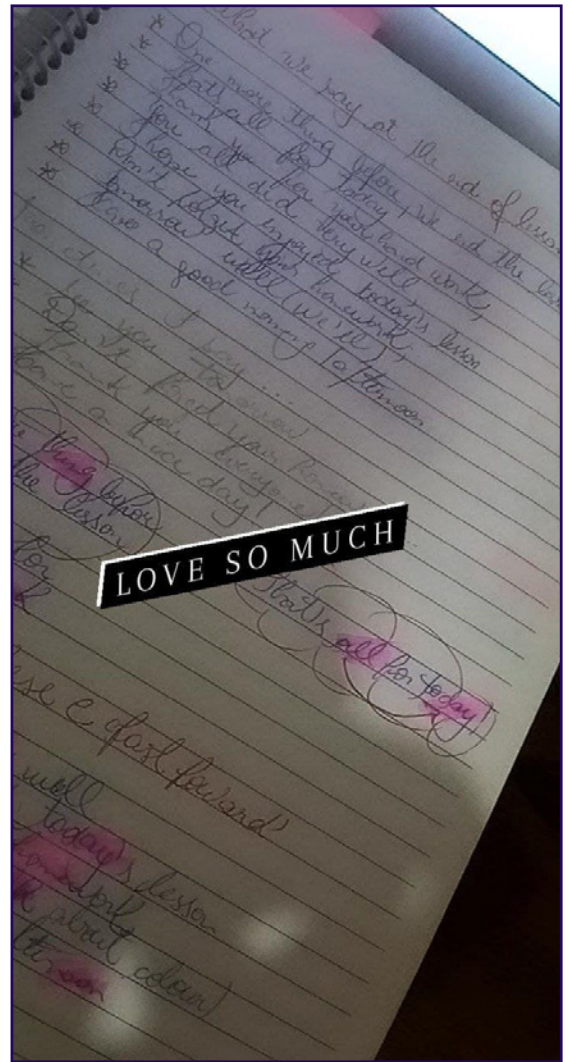 what we say at the end of lesson
* One more thing before, we end the less
* that's all for today
* thank you for your hard work,
* you all did very well,
* I hope you enjoyed today's lesson
* Don't forget your homework,
tomorrow we'll (we'll)
have a good morning / afternoon
times I say...
* See you tomorrow
Don't your
Thank you everyone
Have a nice day!
thing before
the lesson
for
LOVE SO MUCH
that's all for today!
ese e fast forward
well
today's lesson
homework
about colour)